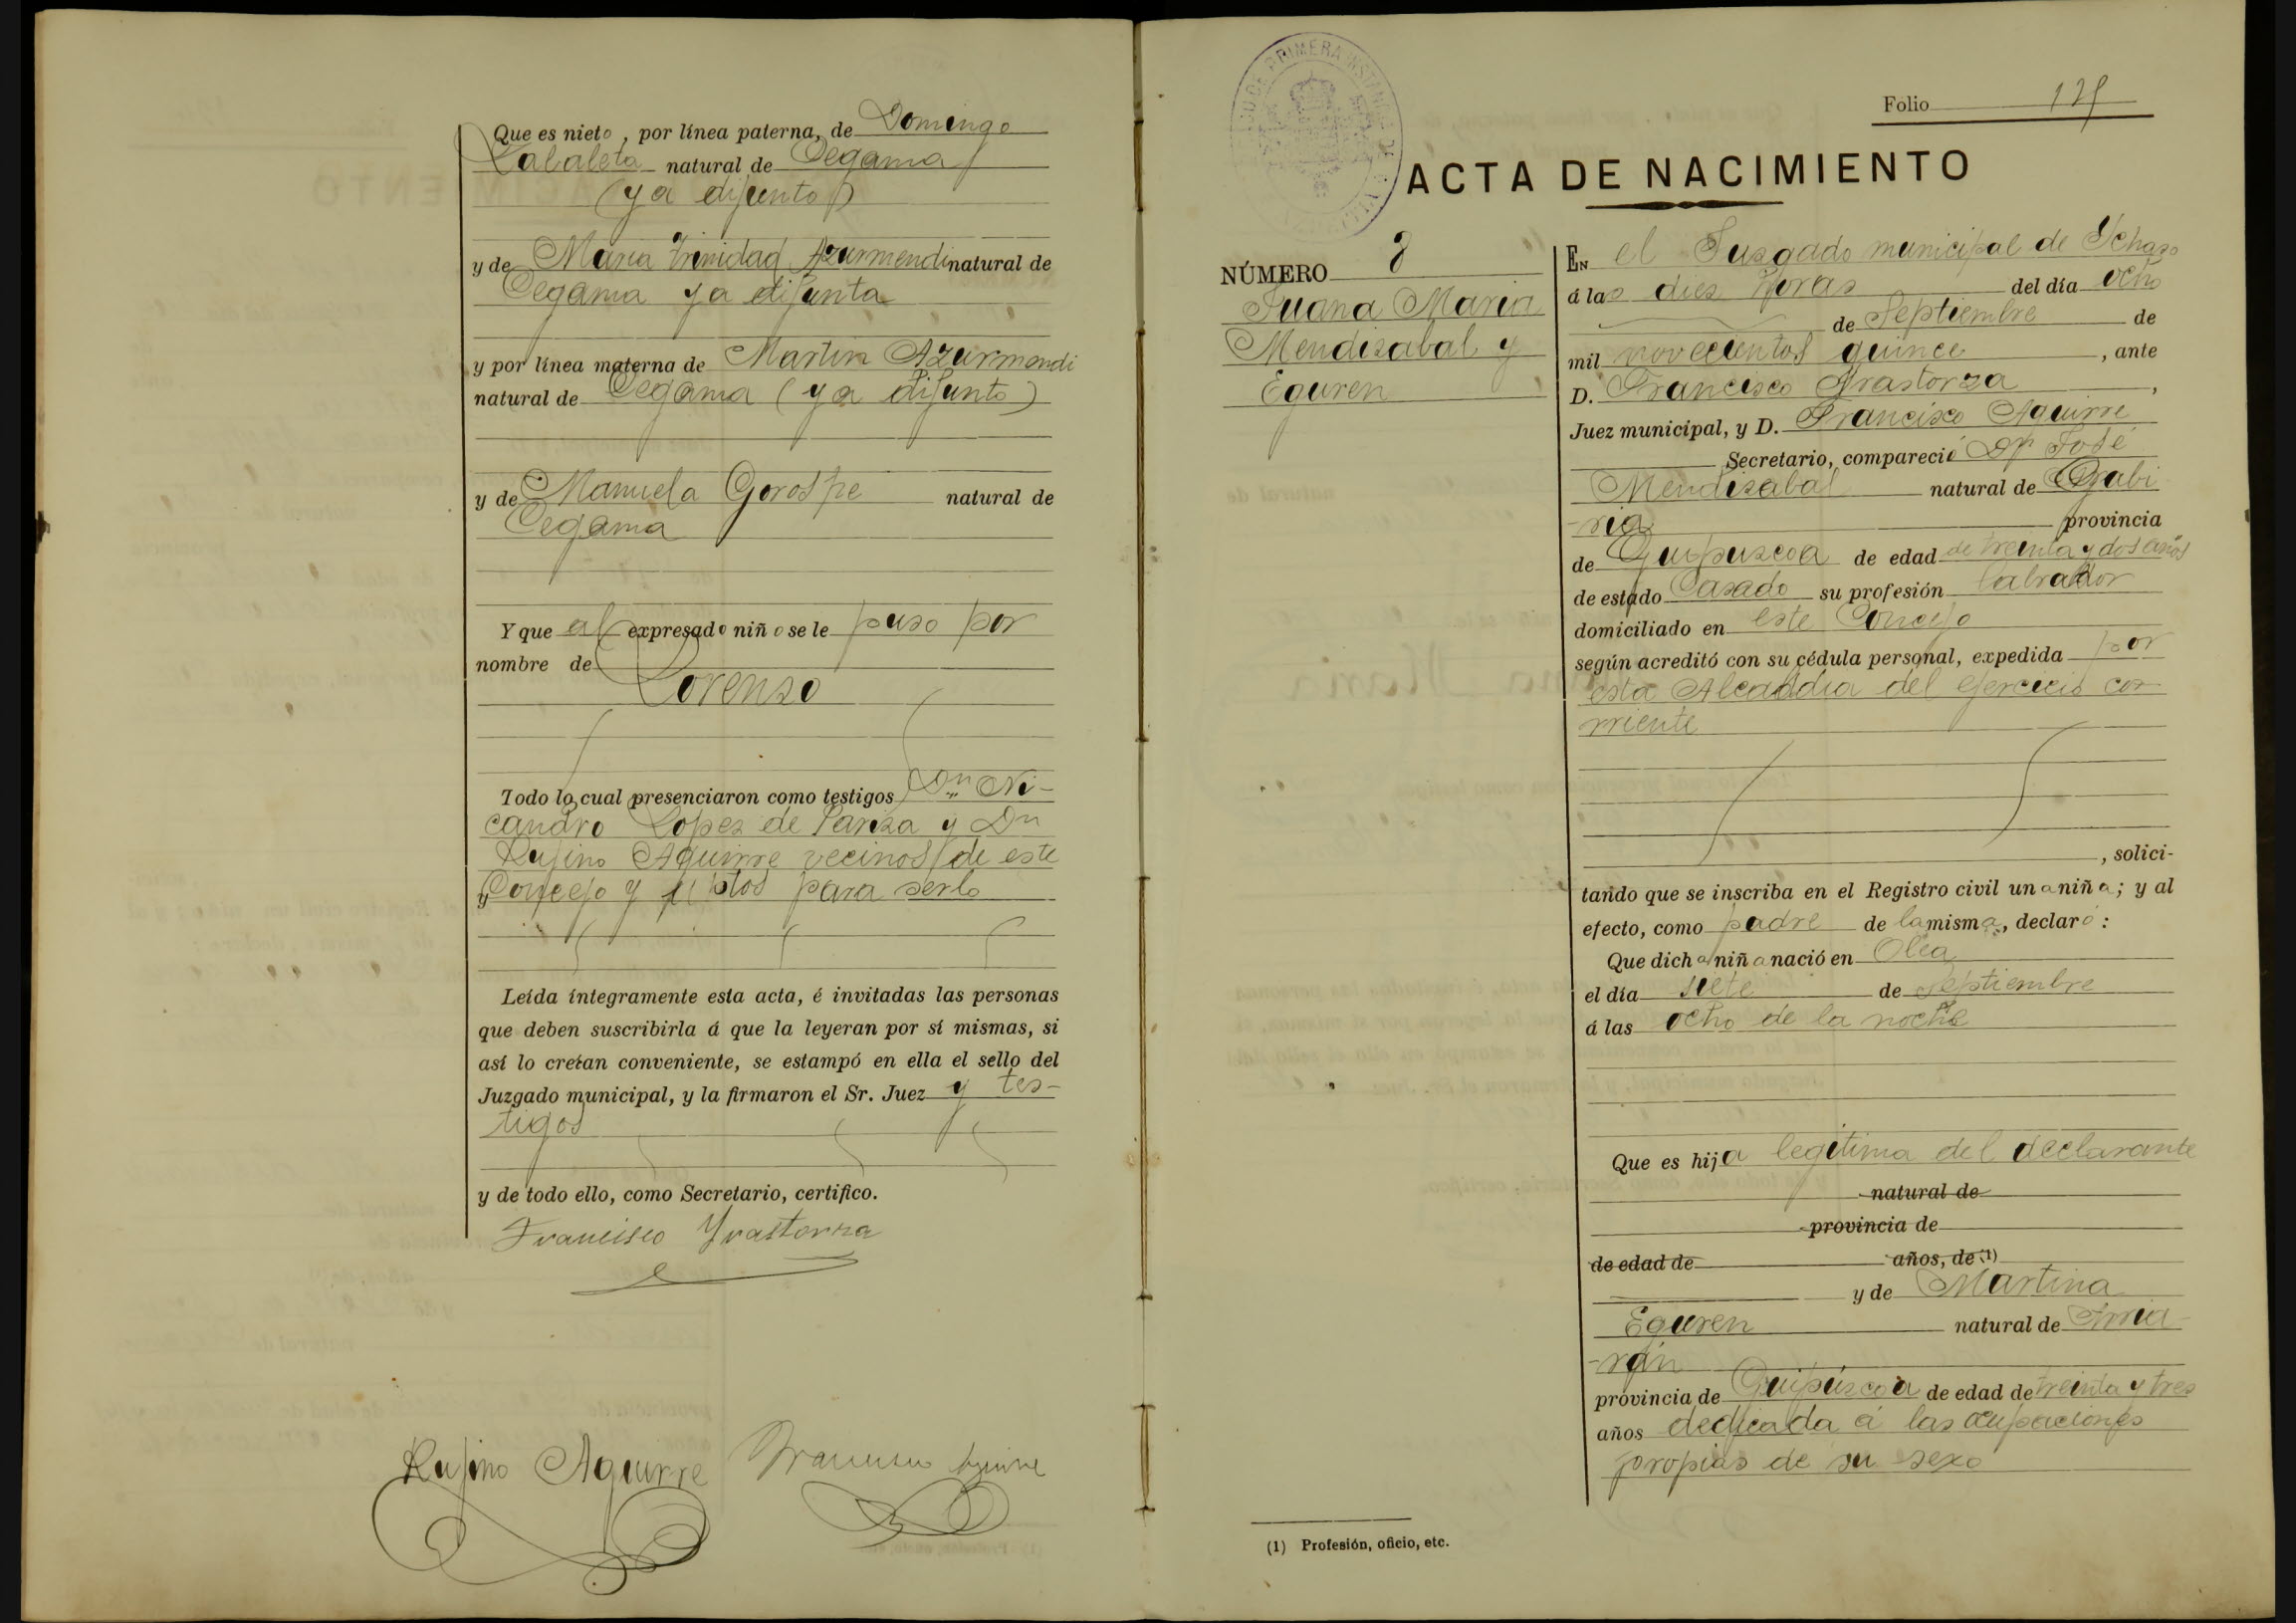 Que es nieto, por línea paterna, de Domingo
Zabaleta natural de Cegama
(ya difunto)
y de Maria Trinidad Azurmendi natural de
Cegama ya difunta
y por línea materna de Martin Azurmendi
natural de Cegama (ya difunto)
y de Manuela Gorospe natural de
Cegama
Y que al expresado niño se le puso por
nombre de
Lorenzo
Todo lo cual presenciaron como testigos Dn Ni-
candro Lopez de Pariza y Dn
Rufino Aguirre vecinos de este
Concejo y aptos para serlo
Leída íntegramente esta acta, é invitadas las personas
que deben suscribirla á que la leyeran por sí mismas, si
así lo creían conveniente, se estampó en ella el sello del
Juzgado municipal, y la firmaron el Sr. Juez y tes-
tigos
y de todo ello, como Secretario, certifico.
Francisco Yrastorza
Rufino Aguirre Francisco Aguirre
Folio
ACTA DE NACIMIENTO
NÚMERO 8
Juana Maria
Mendizabal y
Eguren
EN el Juzgado municipal de Ychaso
á las diez horas del día ocho
de Septiembre de
mil novecientos quince, ante
D. Francisco Yrastorza,
Juez municipal, y D. Francisco Aguirre
Secretario, compareció Dn José
Mendizabal natural de Gabi
-ria provincia
de Guipuzcoa de edad de treinta y dos años
de estado Casado su profesión labrador
domiciliado en este Concejo
según acreditó con su cédula personal, expedida por
esta Alcaldia del ejercicio cor-
rriente
, solici-
tando que se inscriba en el Registro civil una niña; y al
efecto, como padre de la misma, declaró:
Que dicha niña nació en Olea
el día siete de Septiembre
á las ocho de la noche
Que es hija legitima del declarante
natural de
provincia de
de edad de años, de (1)
y de Martina
Eguren natural de Arria-
-rán
provincia de Guipúzcoa de edad de treinta y tres
años dedicada á las ocupaciones
propias de su sexo
(1) Profesión, oficio, etc.